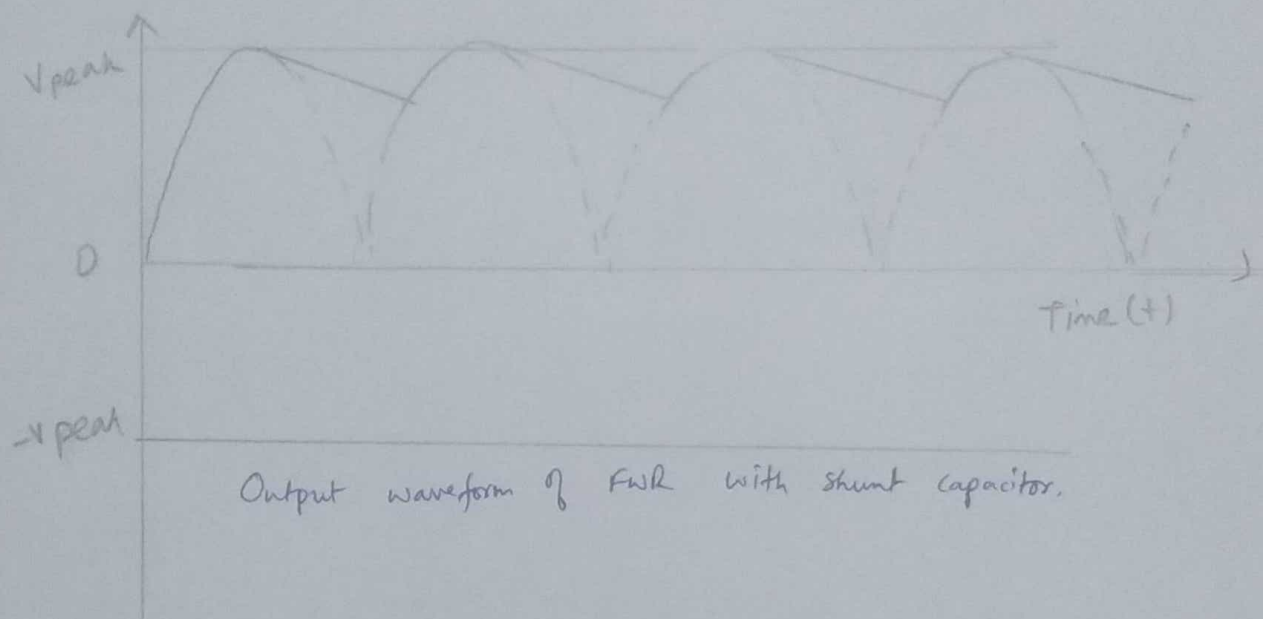 Vpeak
0
Time (t)
-Vpeak
Output waveform of FWR with shunt capacitor.